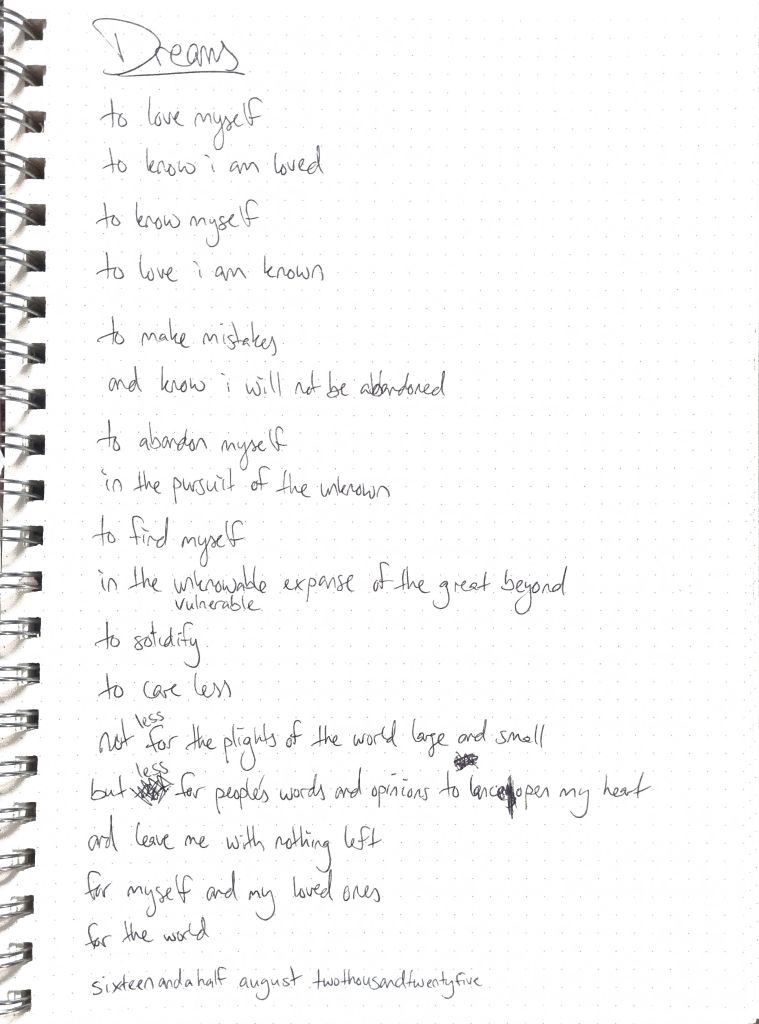 Dreams
to love myself
to know i am loved
to know myself
to love i am known
to make mistakes
and know i will not be abandoned
to abandon myself
in the pursuit of the unknown
to find myself
in the unknowable expanse of the great beyond
vulnerable
to solidify
to care less
less
not for the plights of the world large and small
less
but for people's words and opinions to lance open my heart
and leave me with nothing left
for myself and my loved ones
for the world
sixteenandahalf august twothousandtwentyfive